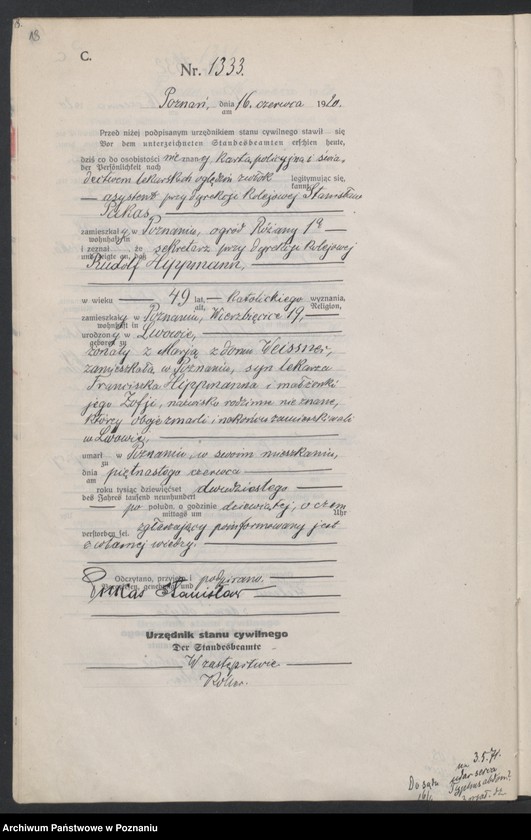 18
C.
Nr. 1333.
Poznań, dnia 16. czerwca 1920.
am
Przed niżej podpisanym urzędnikiem stanu cywilnego stawił się
Vor dem unterzeichneten Standesbeamten erschien heute,
dziś co do osobistości nieznany, kartą policyjną i świa-
der Persönlichkeit nach
dectwem lekarskich oględzin zwłok legitymując się,
kannt,
— asystent przy dyrekcji kolejowej Stanisław
zamieszkały w Poznaniu, ogród Różany 1a
wohnhaft in
i zeznał, że sekretarz przy dyrekcji kolejowej
und zeigte an, daß
Rudolf Hippmann,
w wieku — 49 lat, — katolickiego wyznania,
alt, Religion,
zamieszkały w Poznaniu, Wierzbięcice 19,
wohnhaft in
urodzony w Lwowie,
geboren zu
żonaty z Marją z domu Weissner,
zamieszkałą w Poznaniu, syn lekarza
Franciszka Hippmanna i małżonki
jego Zofji, nazwiska rodzinne nieznane,
którzy oboje zmarli i nakońcu zamieszkiwali
w Lwowie,
umarł w Poznaniu, w swoim mieszkaniu,
zu
dnia piętnastego czerwca
am
roku tysiąc dziewięćset dwudziestego
des Jahres tausend neunhundert
— po połudn. o godzinie dziewiątej, o czem
mittags um Uhr
zgłaszający poinformowany jest
verstorben sei.
z własnej wiedzy.
Odczytano, przyjęto i podpisano.
Vorgelesen, genehmigt und
Stanisław
Urzędnik stanu cywilnego
Der Standesbeamte
W zastępstwie
3.5.71.
Archiwum Państwowe w Poznaniu